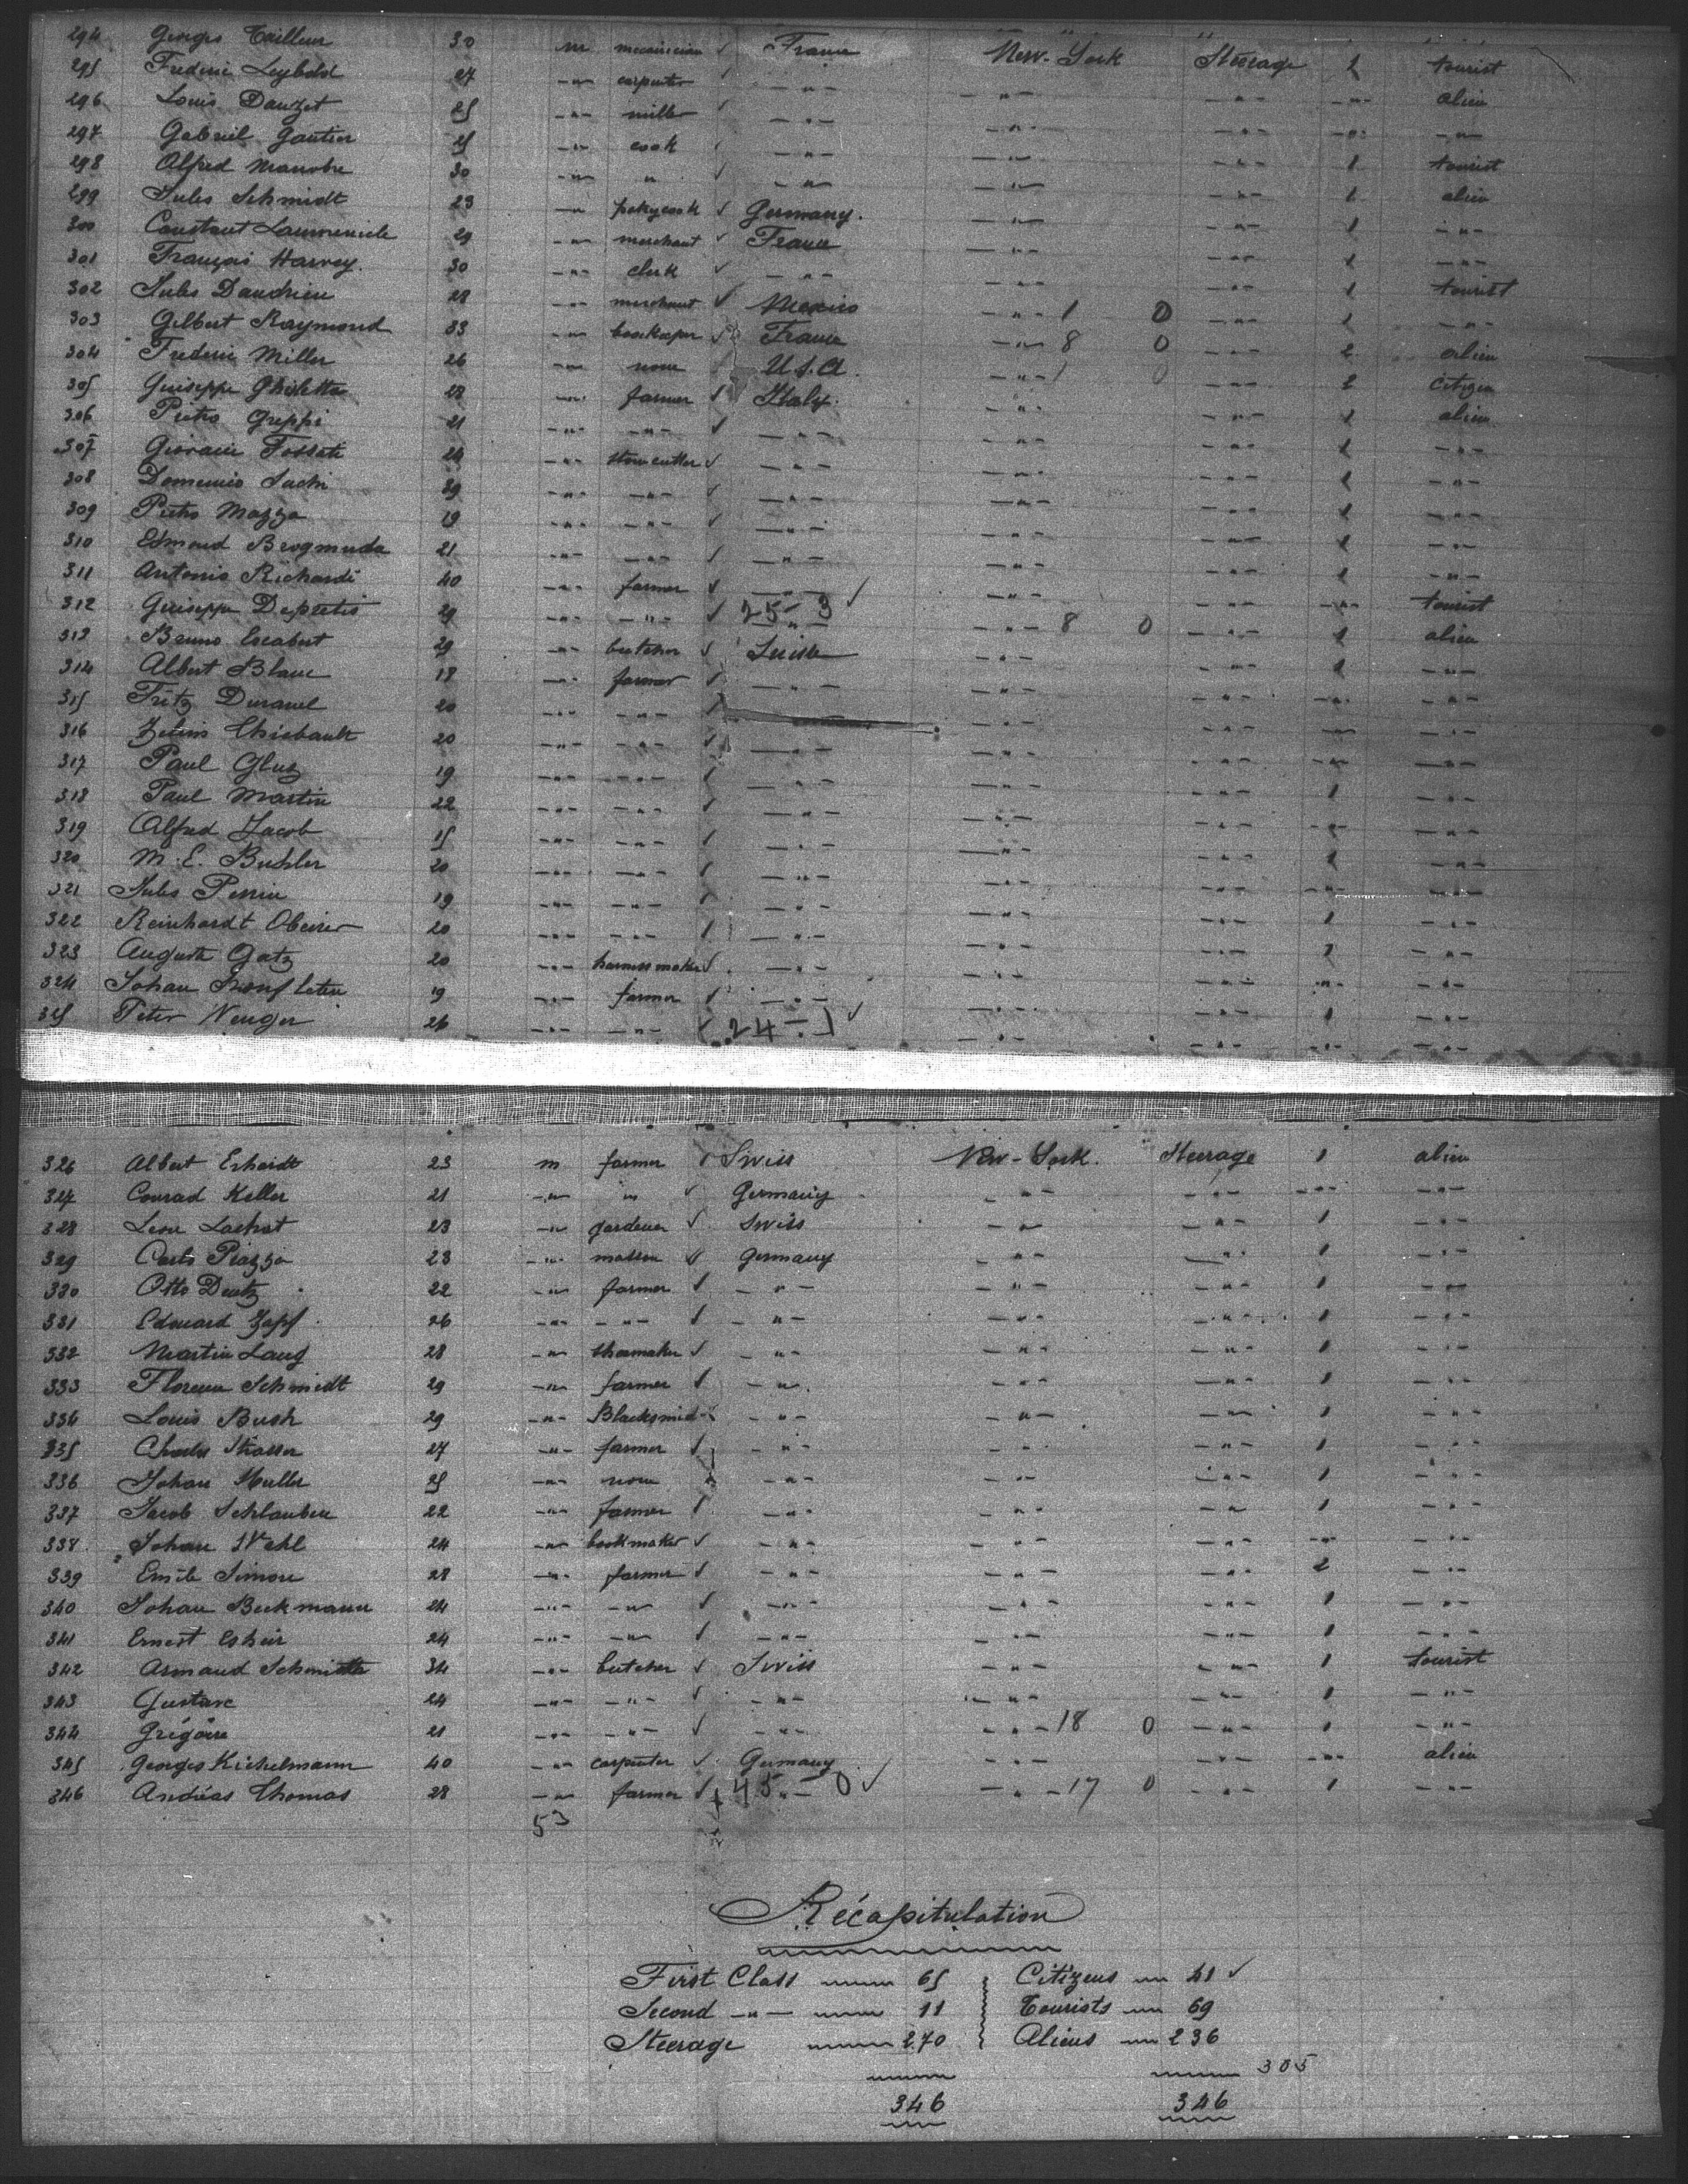 294 Georges Tailleur 30 m mecanician ✓ France New-York Steerage 1 tourist
295 Frederic Leybold 27 -"- carpenter ✓ -"- -"- -"- -"- alien
296 Louis Dauzet 25 -"- miller ✓ -"- -"- -"- -"- -"-
297 Gabriel Gautier 25 -"- cook ✓ -"- -"- -"- 1 tourist
298 Alfred 30 -"- " ✓ -"- -"- -"- 1 alien
299 Jules Schmidt 23 -"- ✓ Germany. -"- -"- 1 -"-
300 Constant 29 -"- merchant ✓ France -"- -"- 1 -"-
301 François Harvey. 30 -"- clerk ✓ -"- -"- -"- 1 tourist
302 Jules Daudrieu 28 -"- merchant ✓ Mexico -"- 1 0 -"- 1 -"-
303 Gilbert Raymond 33 -"- bookkeper ✓ France -"- 8 0 -"- 2 alien
304 Frederic Miller 26 -"- none U.S.A. -"- 1 0 -"- 2 citizen
305 Guiseppe Ghiletta 28 -"- farmer ✓ Italy. -"- -"- 1 alien
306 Pietro Greppi 21 -"- -"- ✓ -"- -"- -"- 1 -"-
307 Giovani Fossati 24 -"- stonecutter ✓ -"- -"- -"- 1 -"-
308 Domenico Sachi 39 -"- -"- ✓ -"- -"- -"- 1 -"-
309 Pietro Mazza 19 -"- -"- ✓ -"- -"- -"- 1 -"-
310 Edmond 21 -"- -"- ✓ -"- -"- -"- 1 -"-
311 Antonio Richardi 40 -"- farmer ✓ -"- -"- -"- -"- tourist
312 Guiseppe Depretis 29 -"- -"- ✓ 25 - 3 ✓ -"- 8 0 -"- 1 alien
313 Benno 29 -"- butcher ✓ Suisse -"- -"- 1 -"-
314 Albert Blanc 18 -"- farmer ✓ -"- -"- -"- -"- -"-
315 Fritz 20 -"- -"- ✓ -"- -"- -"- -"-
316 Thiebault 20 -"- -"- ✓ -"- -"- -"- -"- -"-
317 Paul Gluz 19 -"- -"- ✓ -"- -"- -"- 1 -"-
318 Paul Martin 22 -"- -"- ✓ -"- -"- -"- -"- -"-
319 Alfred Jacob 15 -"- -"- ✓ -"- -"- -"- 1 -"-
320 M. E. Buhler 20 -"- -"- ✓ -"- -"- -"- -"- -"-
321 Jules Perrin 19 -"- -"- ✓ -"- -"- -"- 1 -"-
322 Reinhardt 20 -"- -"- ✓ -"- -"- -"- 1 -"-
323 Auguste Gatz 20 -"- harnessmaker ✓ -"- -"- -"- -"- -"-
324 Johan 19 -"- farmer ✓ -"- -"- -"- 1 -"-
325 Peter Wenger 26 -"- -"- ✓ 24 - 1 ✓ -"- -"- -"- -"-
326 Albert Erhardt 23 m farmer ✓ Swiss New-York. Steerage 1 alien
327 Conrad Keller 21 -"- -"- ✓ Germany -"- -"- -"- -"-
328 Leon Lachat 23 -"- gardener ✓ Swiss -"- -"- 1 -"-
329 Carlo Piazza 23 -"- masson ✓ Germany -"- -"- 1 -"-
330 Otto Deutz 22 -"- farmer ✓ -"- -"- -"- 1 -"-
331 Edouard Zapf 26 -"- -"- ✓ -"- -"- -"- 1 -"-
332 Martin Laug 28 -"- shoemaker ✓ -"- -"- -"- 1 -"-
333 Florenz Schmidt 29 -"- farmer ✓ -"- -"- -"- 1 -"-
334 Louis Bush 29 -"- Blacksmid -"- -"- -"- 1 -"-
335 Charles Strasser 27 -"- farmer ✓ -"- -"- -"- 1 -"-
336 Johan Muller 25 -"- none -"- -"- -"- 1 -"-
337 Jacob Schlauben 22 -"- farmer ✓ -"- -"- -"- 1 -"-
338 Johan Wahl 24 -"- bookmaker ✓ -"- -"- -"- -"- -"-
339 Emile Simon 28 -"- farmer ✓ -"- -"- -"- 2 -"-
340 Johan Beekmann 24 -"- -"- ✓ -"- -"- -"- 1 -"-
341 Ernest 24 -"- -"- ✓ -"- -"- -"- 1 -"-
342 Armand Schmidt 34 -"- butcher ✓ Swiss -"- -"- 1 tourist
343 Gustave 24 -"- -"- ✓ -"- -"- -"- 1 -"-
344 Grégoire 21 -"- -"- ✓ -"- -"- 18 0 -"- 1 -"-
345 Georges Kichelmann 40 -"- carpenter ✓ Germany -"- -"- -"- alien
346 Andréas Thomas 28 -"- farmer ✓ 45 - 0 ✓ -"- 17 0 -"- 1 -"-
53
Récapitulation
First Class 65 Citizens 41 ✓
Second -"- 11 Tourists 69
Steerage 270 Aliens 236
305
346 346